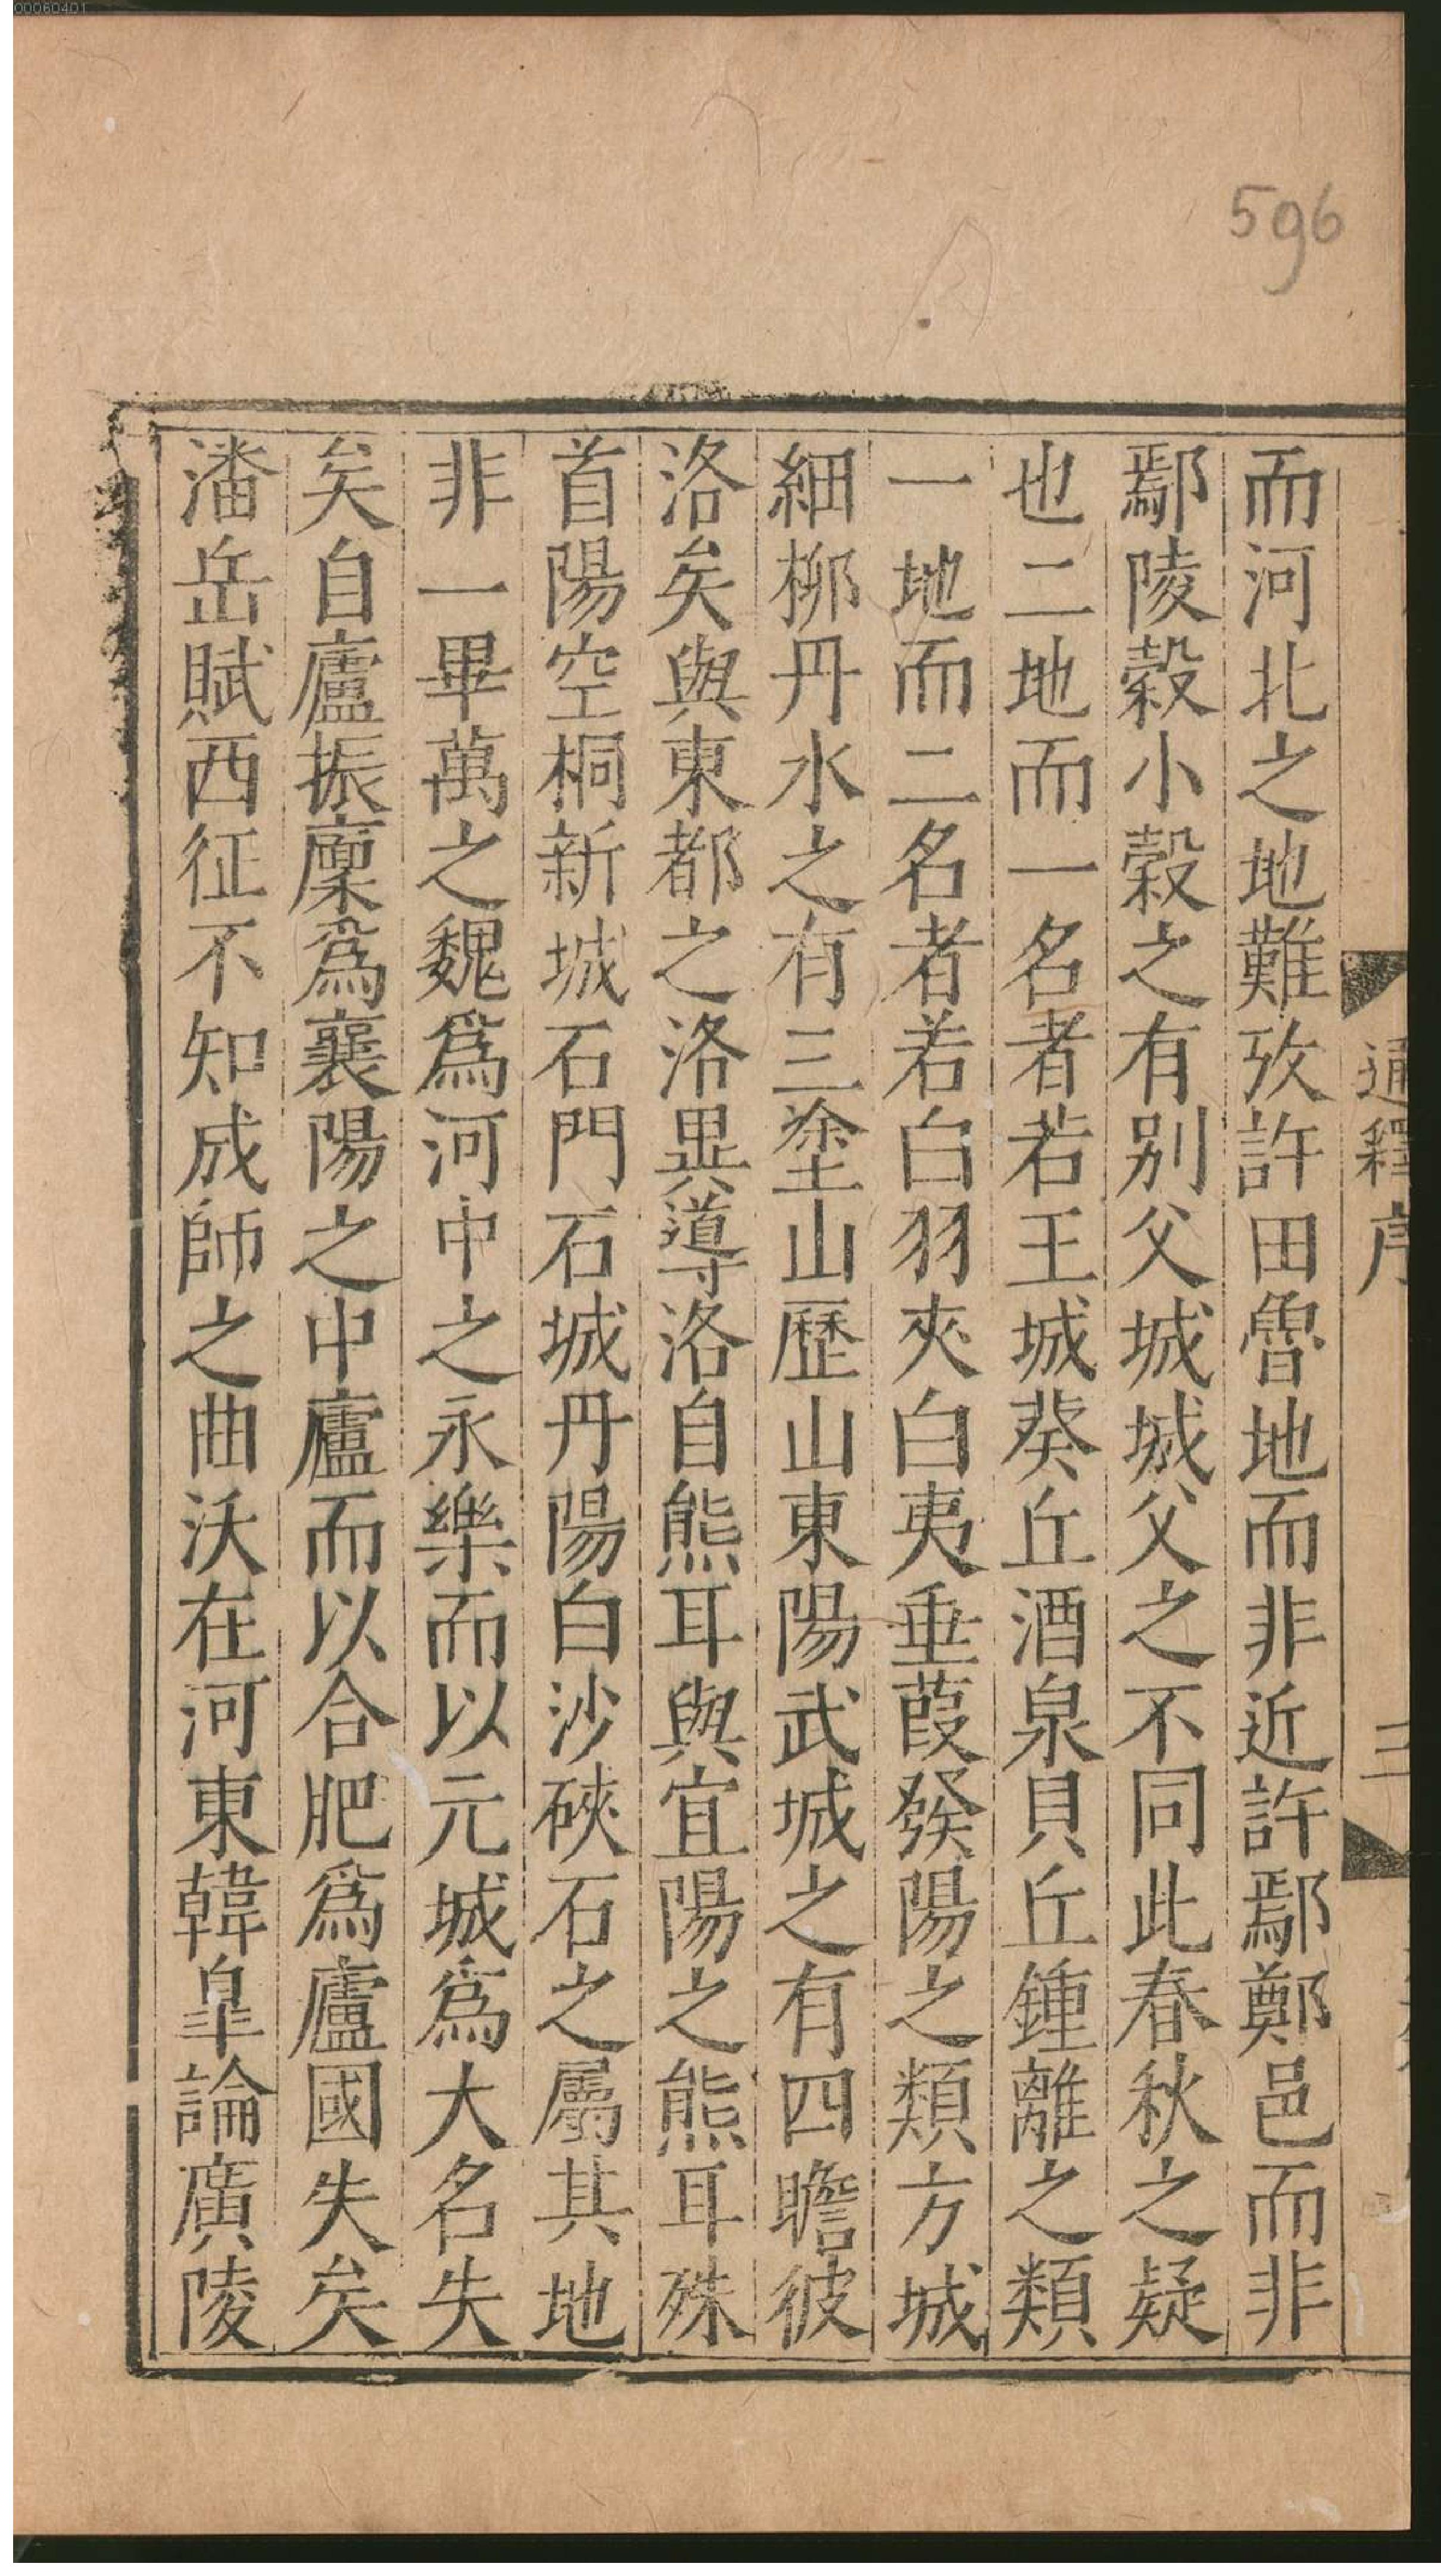 00060401
596
通釋序
二
而河北之地難攷許田魯地而非近許鄢鄭邑而非
鄢陵穀小穀之有別父城城父之不同此春秋之疑
也二地而一名者若王城葵丘酒泉貝丘鍾離之類
一地而二名者若白羽夾白夷垂葭發陽之類方城
細柳丹水之有三塗山歷山東陽武城之有四瞻彼
洛矣與東都之洛異導洛自熊耳與宜陽之熊耳殊
首陽空桐新城石門石城丹陽白沙硤石之屬其地
非一畢萬之魏爲河中之永樂而以元城爲大名失
矣自廬振廩爲襄陽之中廬而以合肥爲廬國失矣
潘岳賦西征不知成師之曲沃在河東韓皐論廣陵